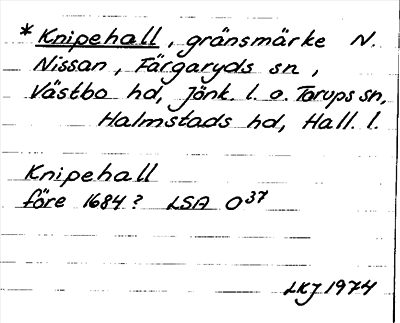 *Knipehall, gränsmärke N.
Nissan, Färgaryds sn,
Västbo hd, Jönk. l. o. Torups sn,
Halmstads hd, Hall. l.
Knipehall
före 1684? LSA O37
LKJ 1974